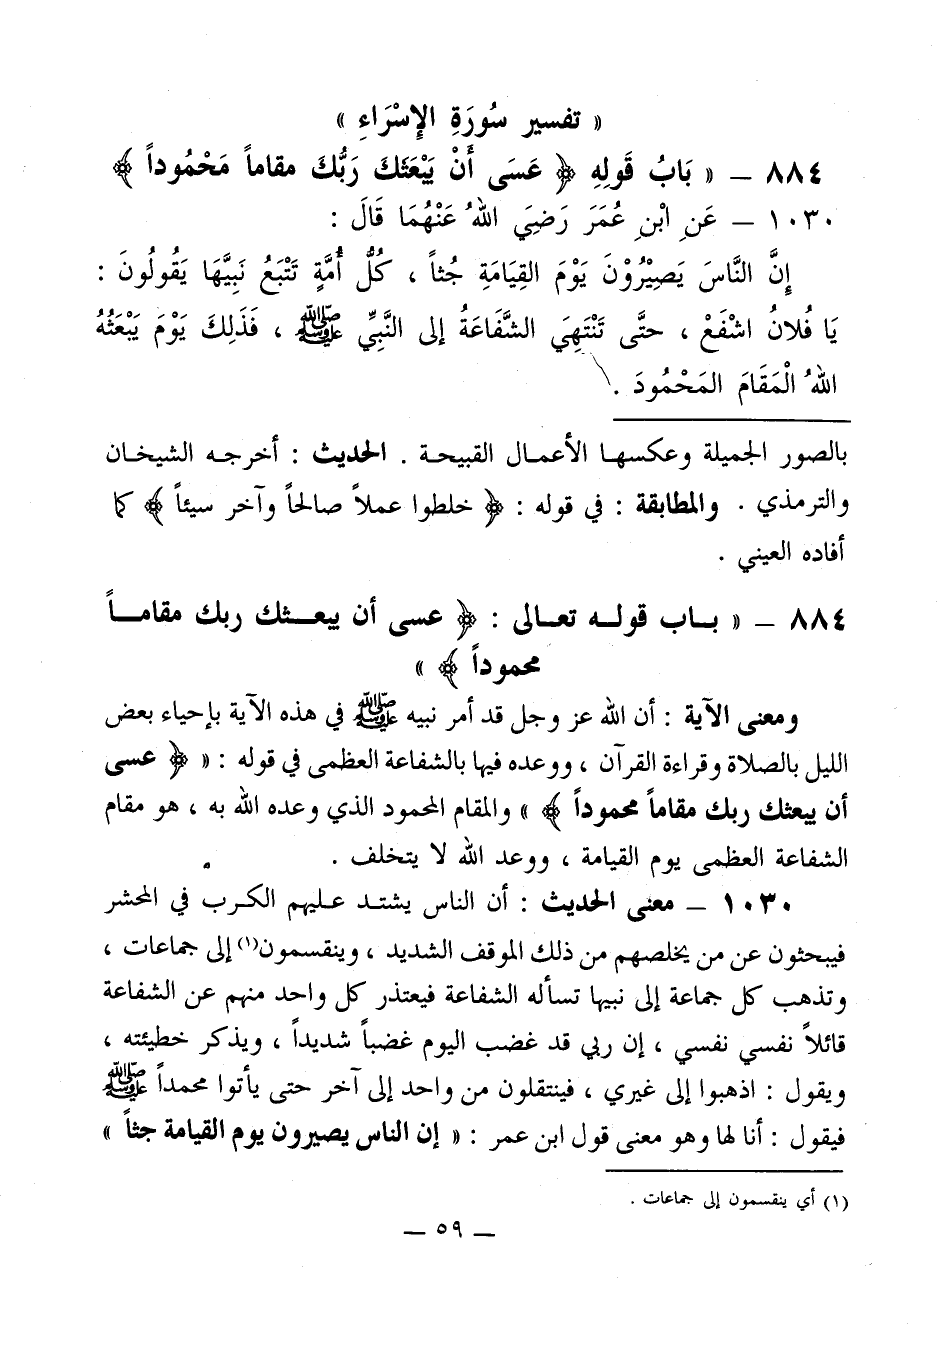 « تفسير سُورَةِ الإِسْرَاءِ »
٨٨٤ – « بَابُ قَوِلِهِ ﴿ عَسَى أَنْ يَبْعَثَكَ رَبُّكَ مقاماً مَحْمُوداً ﴾
١٠٣٠ – عَنِ ابْنِ عُمَرَ رَضِيَ اللهُ عَنْهُمَا قَالَ :
إِنَّ النَّاسَ يَصِيْرُوْنَ يَوْمَ القِيَامَةِ جُثاً ، كُلُّ أُمَّةٍ تَتْبَعُ نَبِيَّهَا يَقُولُونَ :
يَا فُلانُ اشْفَعْ ، حتَّى تَنْتَهِيَ الشَّفَاعَةُ إلى النَّبِيِّ ﷺ ، فَذَلِكَ يَوْمَ يَبْعَثُهُ
اللهُ الْمَقَامَ المَحْمُودَ .
بالصور الجميلة وعكسها الأعمال القبيحة . الحديث : أخرجه الشيخان
والترمذي . والمطابقة : في قوله : ﴿ خلطوا عملاً صالحاً وآخر سيئاً ﴾ كما
أفاده العيني .
٨٨٤ – « بــاب قولــه تعــالى : ﴿ عسى أن يبعــثك ربك مقامــاً
محموداً ﴾ »
ومعنى الآية : أن الله عز وجل قد أمر نبيه ﷺ في هذه الآية بإحياء بعض
الليل بالصلاة وقراءة القرآن ، ووعده فيها بالشفاعة العظمى في قوله : « ﴿ عسى
أن يبعثك ربك مقاماً محموداً ﴾ » والمقام المحمود الذي وعده الله به ، هو مقام
الشفاعة العظمى يوم القيامة ، ووعد الله لا يتخلف .
١٠٣٠ – معنى الحديث : أن الناس يشتد عليهم الكرب في المحشر
فيبحثون عن من يخلصهم من ذلك الموقف الشديد ، وينقسمون(١) إلى جماعات ،
وتذهب كل جماعة إلى نبيها تسأله الشفاعة فيعتذر كل واحد منهم عن الشفاعة
قائلاً نفسي نفسي ، إن ربي قد غضب اليوم غضباً شديداً ، ويذكر خطيئته ،
ويقول : اذهبوا إلى غيري ، فينتقلون من واحد إلى آخر حتى يأتوا محمداً ﷺ
فيقول : أنا لها وهو معنى قول ابن عمر : « إن الناس يصيرون يوم القيامة جثاً »
(١) أي ينقسمون إلى جماعات .
– ٥٩ –